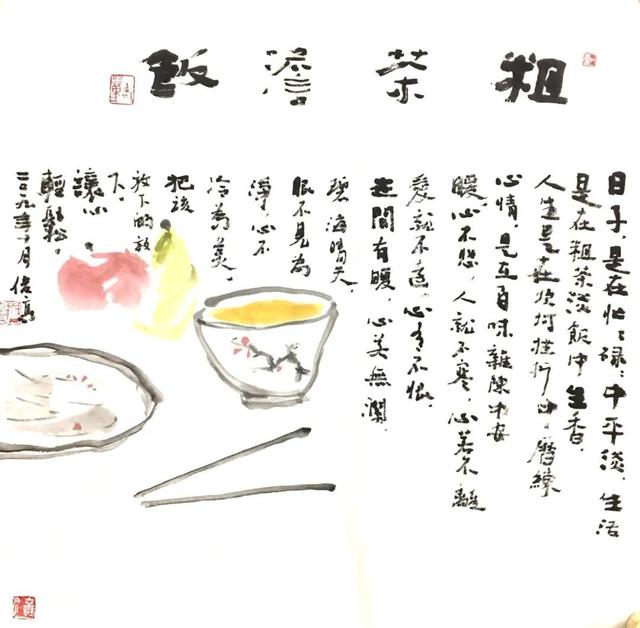 粗茶澹飯
日子，是在忙忙碌碌中平淡，生活
是在粗茶淡飯中生香，
人生是在坎坷挫折中曆練
心情，是在百味雜陳中安
暖，心不愁，人就不寒，心若不離
愛就不遠，心有不恨，
世間有暖，心若無瀾，
碧海晴天，
眼不見為
淨，心不
冷為美，
把該
放下的放
下，
讓心
輕鬆。
年 月